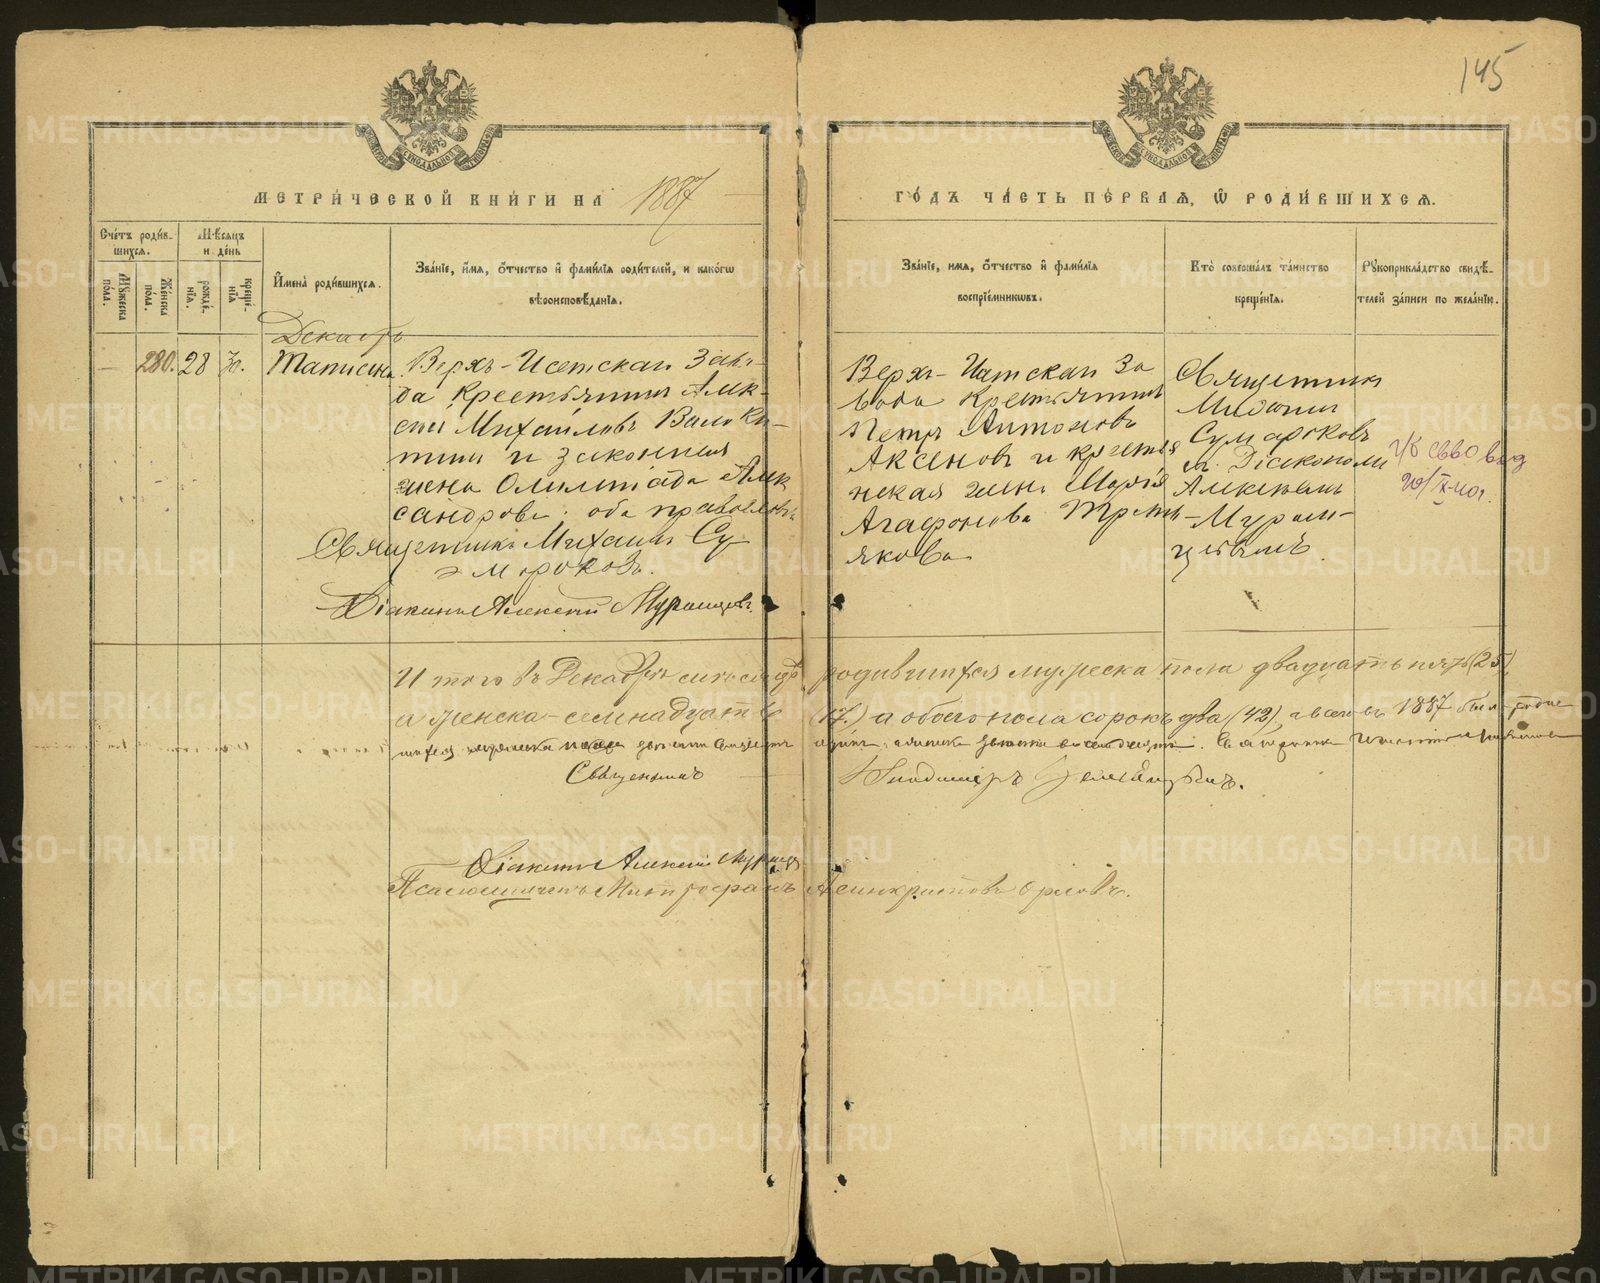 145
МЕТРИ́ЧЕСКОЙ КНИ́ГИ НА 1887
ГО́ДЪ ЧА́СТЬ ПЕ́РВАЯ, Ѡ РОДИ́ВШИХСЯ.
Сче́тъ роди́в-
шихся.
Мꙋжеска по́ла.
Же́нска пола.
Мѣсяцъ
и де́нь
рожде́-
нія.
креще́-
нія
И́мена̀ роди́вшихся.
Зва́ніе, и́мя, ѻ́тчество и҆ фами́лія роди́телей, и како́гѡ
вѣроисповѣ́данія.
Зва́ніе, имя, ѻ́тчество и҆ фами́лія
воспріе́мниковъ.
Кто̀ соверша́лъ та́инство
креще́нія.
Рꙋкоприкла́дство свидѣ́-
телей за́писи по жела́нію.
Декабрь
— 280. 28 30. Татиана
Верхъ-Исетскаго Заво-
да крестьянинъ Алек-
сѣй Михайловъ Валок-
тинъ и законная
жена Олимпіада Алек
сандрова. оба православн.
Священникъ Михаилъ Су-
мароковъ.
Діаконъ Алексѣй Муранцевъ.
Верхъ-Исетскаго За
вода крестьянинъ
Петръ Антоновъ
Аксеновъ и крестья
нская жена Марія
Агафонова Треть-
якова
Священникъ
Михаилъ
Сумароковъ
съ Діакономъ
Алексѣемъ
Муран-
цевымъ.
И того въ Декабрѣ родившихся мужеска пола двадцать пять (25),
а женска - семнадцать (17.) а обоего пола сорокъ два (42), а всего въ 1887 было родив
шихся мужеска пола
Священникъ
Діаконъ Алексѣй Муранцев
Псаломщикъ Митрофанъ Асинкритовъ Орловъ.
METRIKI.GASO-URAL.RU